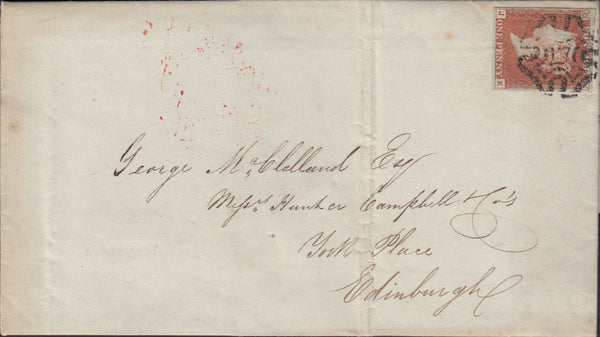 ONE PENNY
J K
George McClelland Esq
Messrs Hunter Campbell & Co's
York Place
Edinburgh